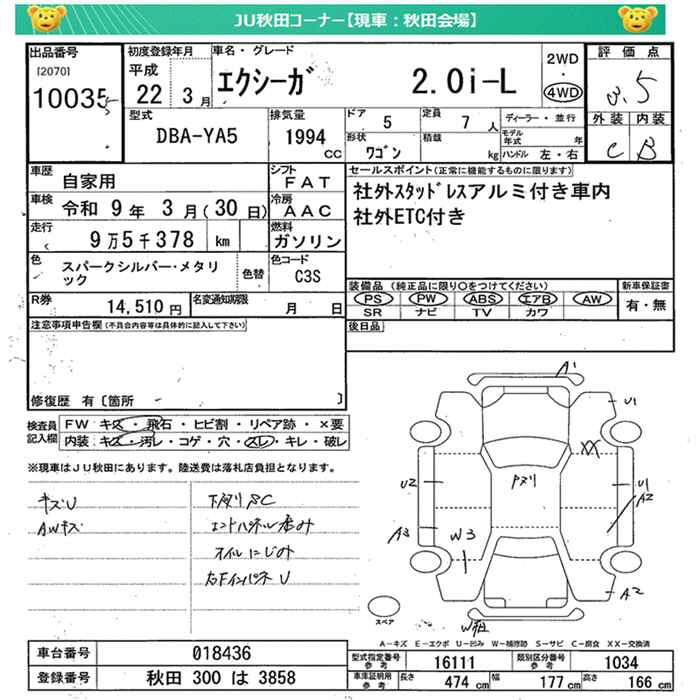 JU秋田コーナー【現車：秋田会場】
出品番号
[2070]
10035
初度登録年月
平成
22 3月
車名・グレード
エクシーガ 2.0i-L
2WD
・
4WD
評価点
3.5
外装 内装
C B
型式
DBA-YA5
排気量
1994
cc
ドア
5
定員
7 人
形状
ワゴン
積載
kg
ディーラー・並行
モデル年式 年
ハンドル 左・右
車歴
自家用
シフト
FAT
車検
令和 9年 3月(30日)
冷房
AAC
走行
9万5千378 km
燃料
ガソリン
色
スパークシルバー・メタリック
色替
色コード
C3S
R券
14,510円
名変通知期限
月 日
セールスポイント(正常に機能するものに限ります)
社外スタッドレスアルミ付き車内
社外ETC付き
装備品 (純正品に限り○をつけてください)
PS PW ABS エアB AW
SR ナビ TV カワ
新車保証書
有・無
後日品
注意事項申告欄(不具合内容等は具体的に記入して下さい)
修復歴 有〔箇所 〕
検査員記入欄
FW キズ・飛石・ヒビ割・リペア跡・×要
内装: キズ・汚レ・コゲ・穴・スレ・キレ・破レ
※現車はJU秋田にあります。陸送費は落札店負担となります。
キズU
AWキズ
下廻りSC
エンドパネル歪み
オイルにじみ
右FインパネU
A1
U1
XX
U2
U1
A2
A3
W3
A2
スペア
A-キズ E-エクボ U-凹み W-補修跡 S-サビ C-腐食 XX-交換済
車台番号
018436
登録番号
秋田 300 は 3858
型式指定番号 参考
16111
類別区分番号 参考
1034
車庫証明用 参考
長さ 474 cm
幅 177 cm
高さ 166 cm